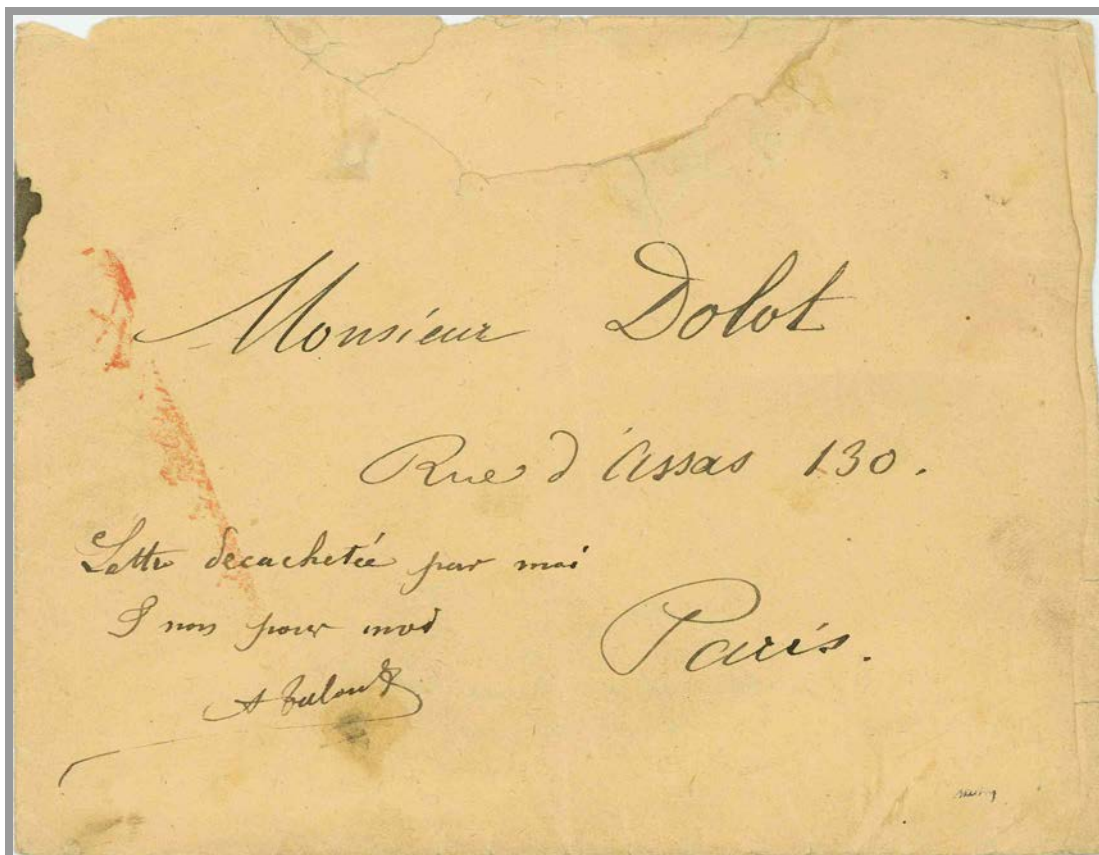 Monsieur Dolot
Rue d'Assas 130.
Lettre decachetée par moi
& non pour moi
Paris.